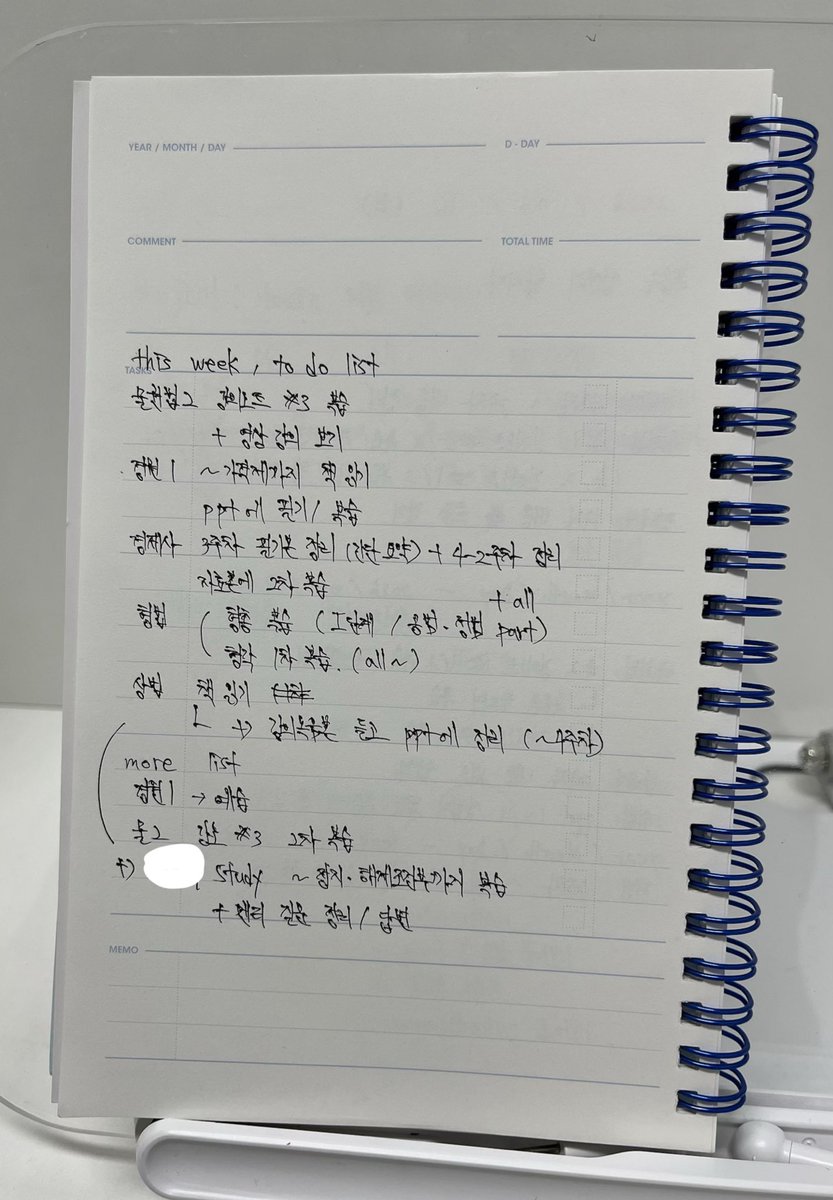 YEAR / MONTH / DAY
D - DAY
COMMENT
TOTAL TIME
this week, to do list
TASKS
물권법2 강의노트 *3 복습
+ 영상 강의 보기
정원1 ~가격제까지 책 읽기
ppt에 필기/ 복습
경제사 3주차 필기본 정리 (간단 요약) + 4-2주차 정리
자료본에 2차 복습
+ all
헌법 헌총 복습 (I단체 / part)
1차 복습. (all~)
상법 책 읽기
+) 강의녹음본 듣고 ppt에 정리 (~4주차)
more list
정원1 → 예습
물2 강노 *3 2차 복습
+) study 복습
+ 멘티 질문 정리 / 답변
MEMO